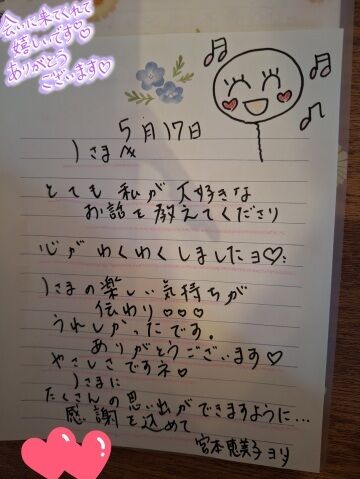 会いに来てくれて
嬉しいです♡
ありがとう
ございます♡
5月17日
Jさま
とても私が大好きな
お話を教えてくださり
心がわくわくしましたヨ♡
Jさまの楽しい気持ちが
伝わり♡♡♡
うれしかったです。
ありがとうございます♡
やさしさですネ。
Jさまに
たくさんの思い出ができますように…
感謝を込めて
宮本恵美子ヨリ